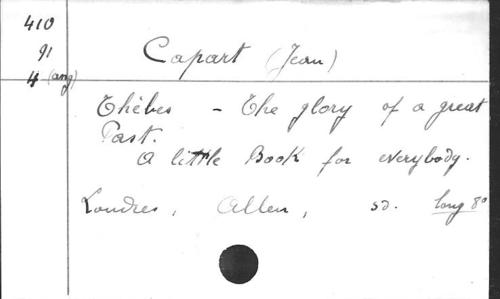 410
91
4 (ang)
Capart (Jean)
Thèbes - The glory of a great
Past.
A little Book for everybody.
Londres, Allen, sd. long 8°